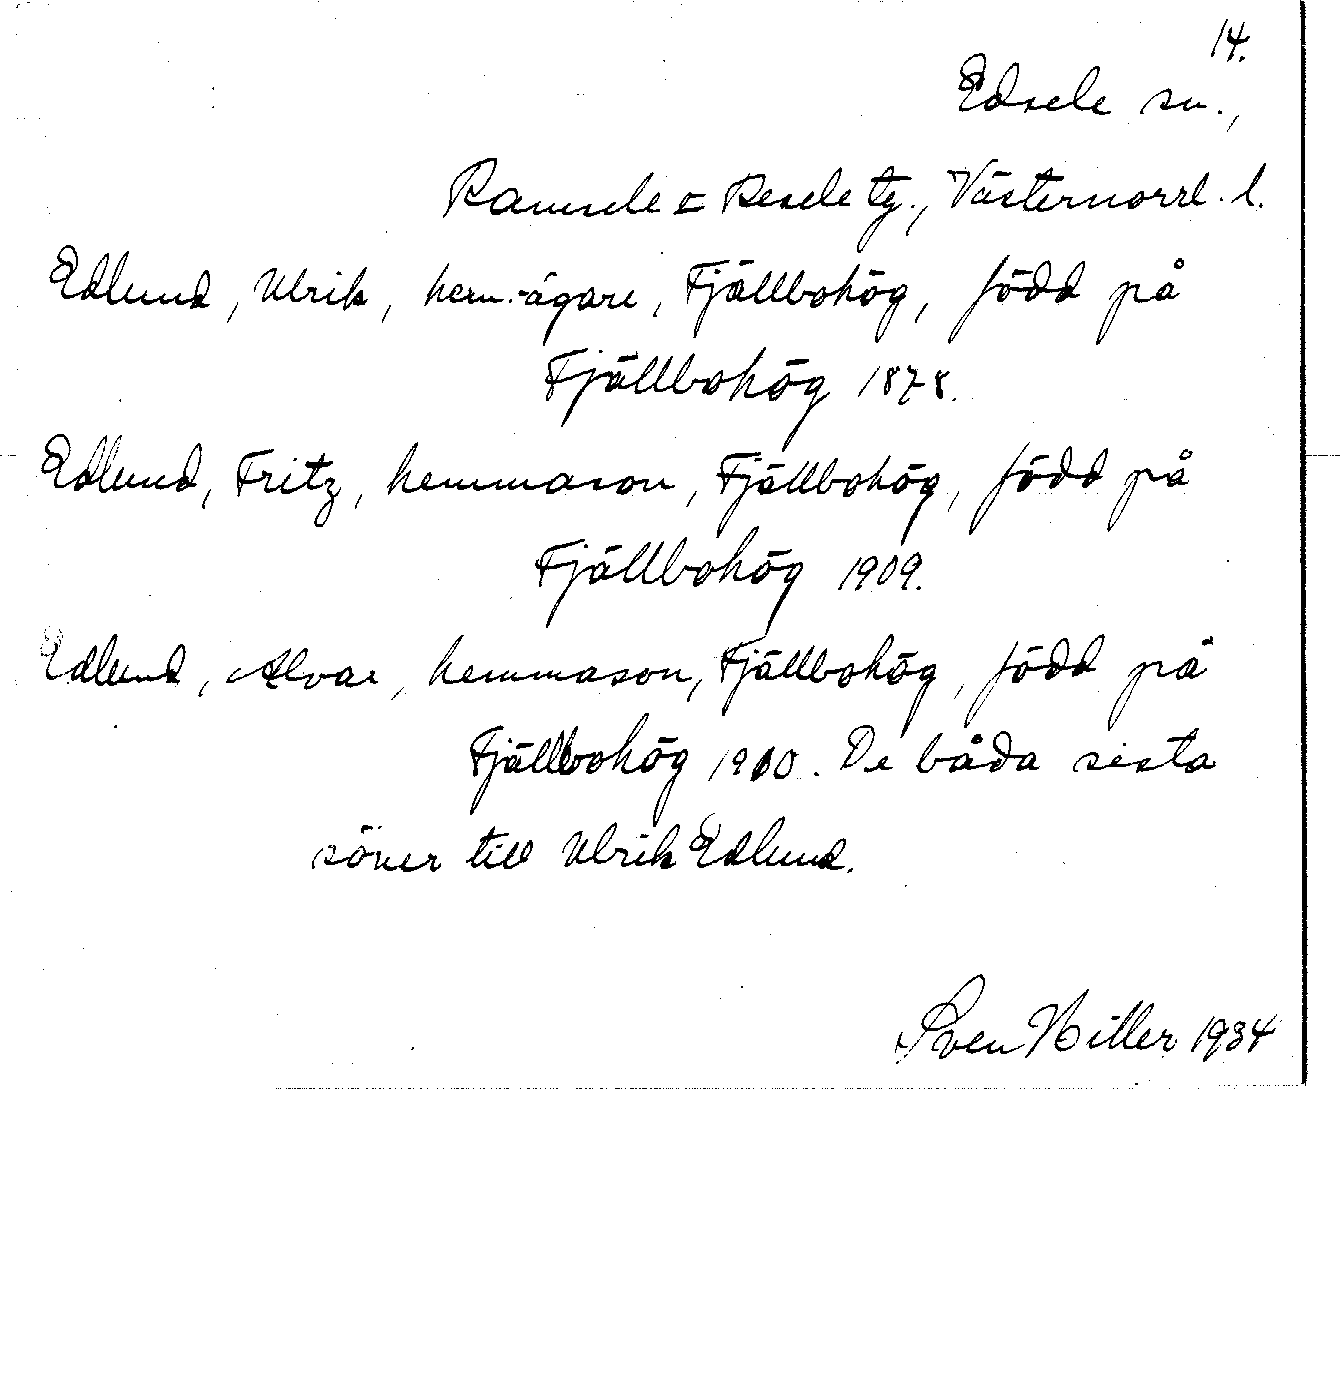 14.
Edsele sn.,
Ramsele o Resele tg., Västernorrl. l.
Edlund, Ulrik, hem.-ägare, Fjällbohög, född på
Fjällbohög 1878.
Edlund, Fritz, hemmason, Fjällbohög, född på
Fjällbohög 1909.
Edlund, Alvar, hemmason, Fjällbohög, född på
Fjällbohög 1910. De båda sista
söner till Ulrik Edlund.
Sven Hiller 1934